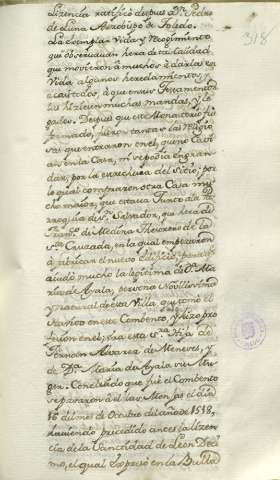 318
licencia ratificó despues Dn. Pedro
de Luna Arzobispo de Toledo.
La exemplar Vida y Recogimiento
que observauan hera de tal Calidad
que movieron a muchos a darlas en
Vida algunos heredamientos, y
a otros, a que en sus Testamentos
las hiziesen muchas mandas, y le-
gados. Despues que este Monasterio fue
formado, fueron tantas las Religio
sas que entraron en el, que no Cavi-
an en la Casa, ni se podia engran-
dar, por la estrechura del Sitio; por
lo qual compraron otra Casa mu-
cho maior, que estava Junto a la Pa-
rroquia de Sn. Salvador, que hera de
Franco. de Medina Thesorero de la
Sta. Cruzada, en la qual empezaron
a fabricar el nuevo Edificio, para
ayudo mucho la legitima de Da. Ma-
ria de Ayala, persona Novilissima
y natural de esta Villa, que tomó el
havito en este Combento, y hizo pro
fesion en el; era esta Sra. Hija de
Hernan Alvarez de Meneses, y
de Da. Maria de Ayala su Mu-
ger. Concluido que fue el Combento
se pasaron a el las Monjas el dia
16 del mes de Octubre del año de 1519,
haviendo precedido antes la lizen-
cia de la Santidad de Leon Deci
mo, el qual expreso en la Bulla